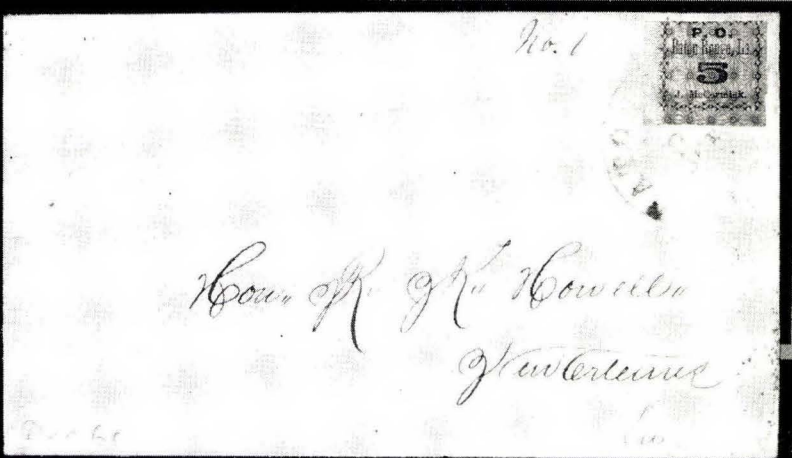 No. 1
P. O.
Baton Rouge, La.
5
J. McCormick.
Hon. R. K. Howell
New Orleans